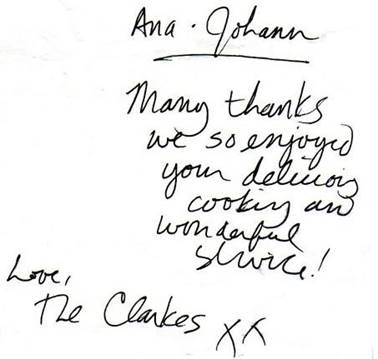 Ana · Johann
Many thanks
we so enjoyed
your delicious
cooking and
wonderful
service!
Love,
The Clarkes XX